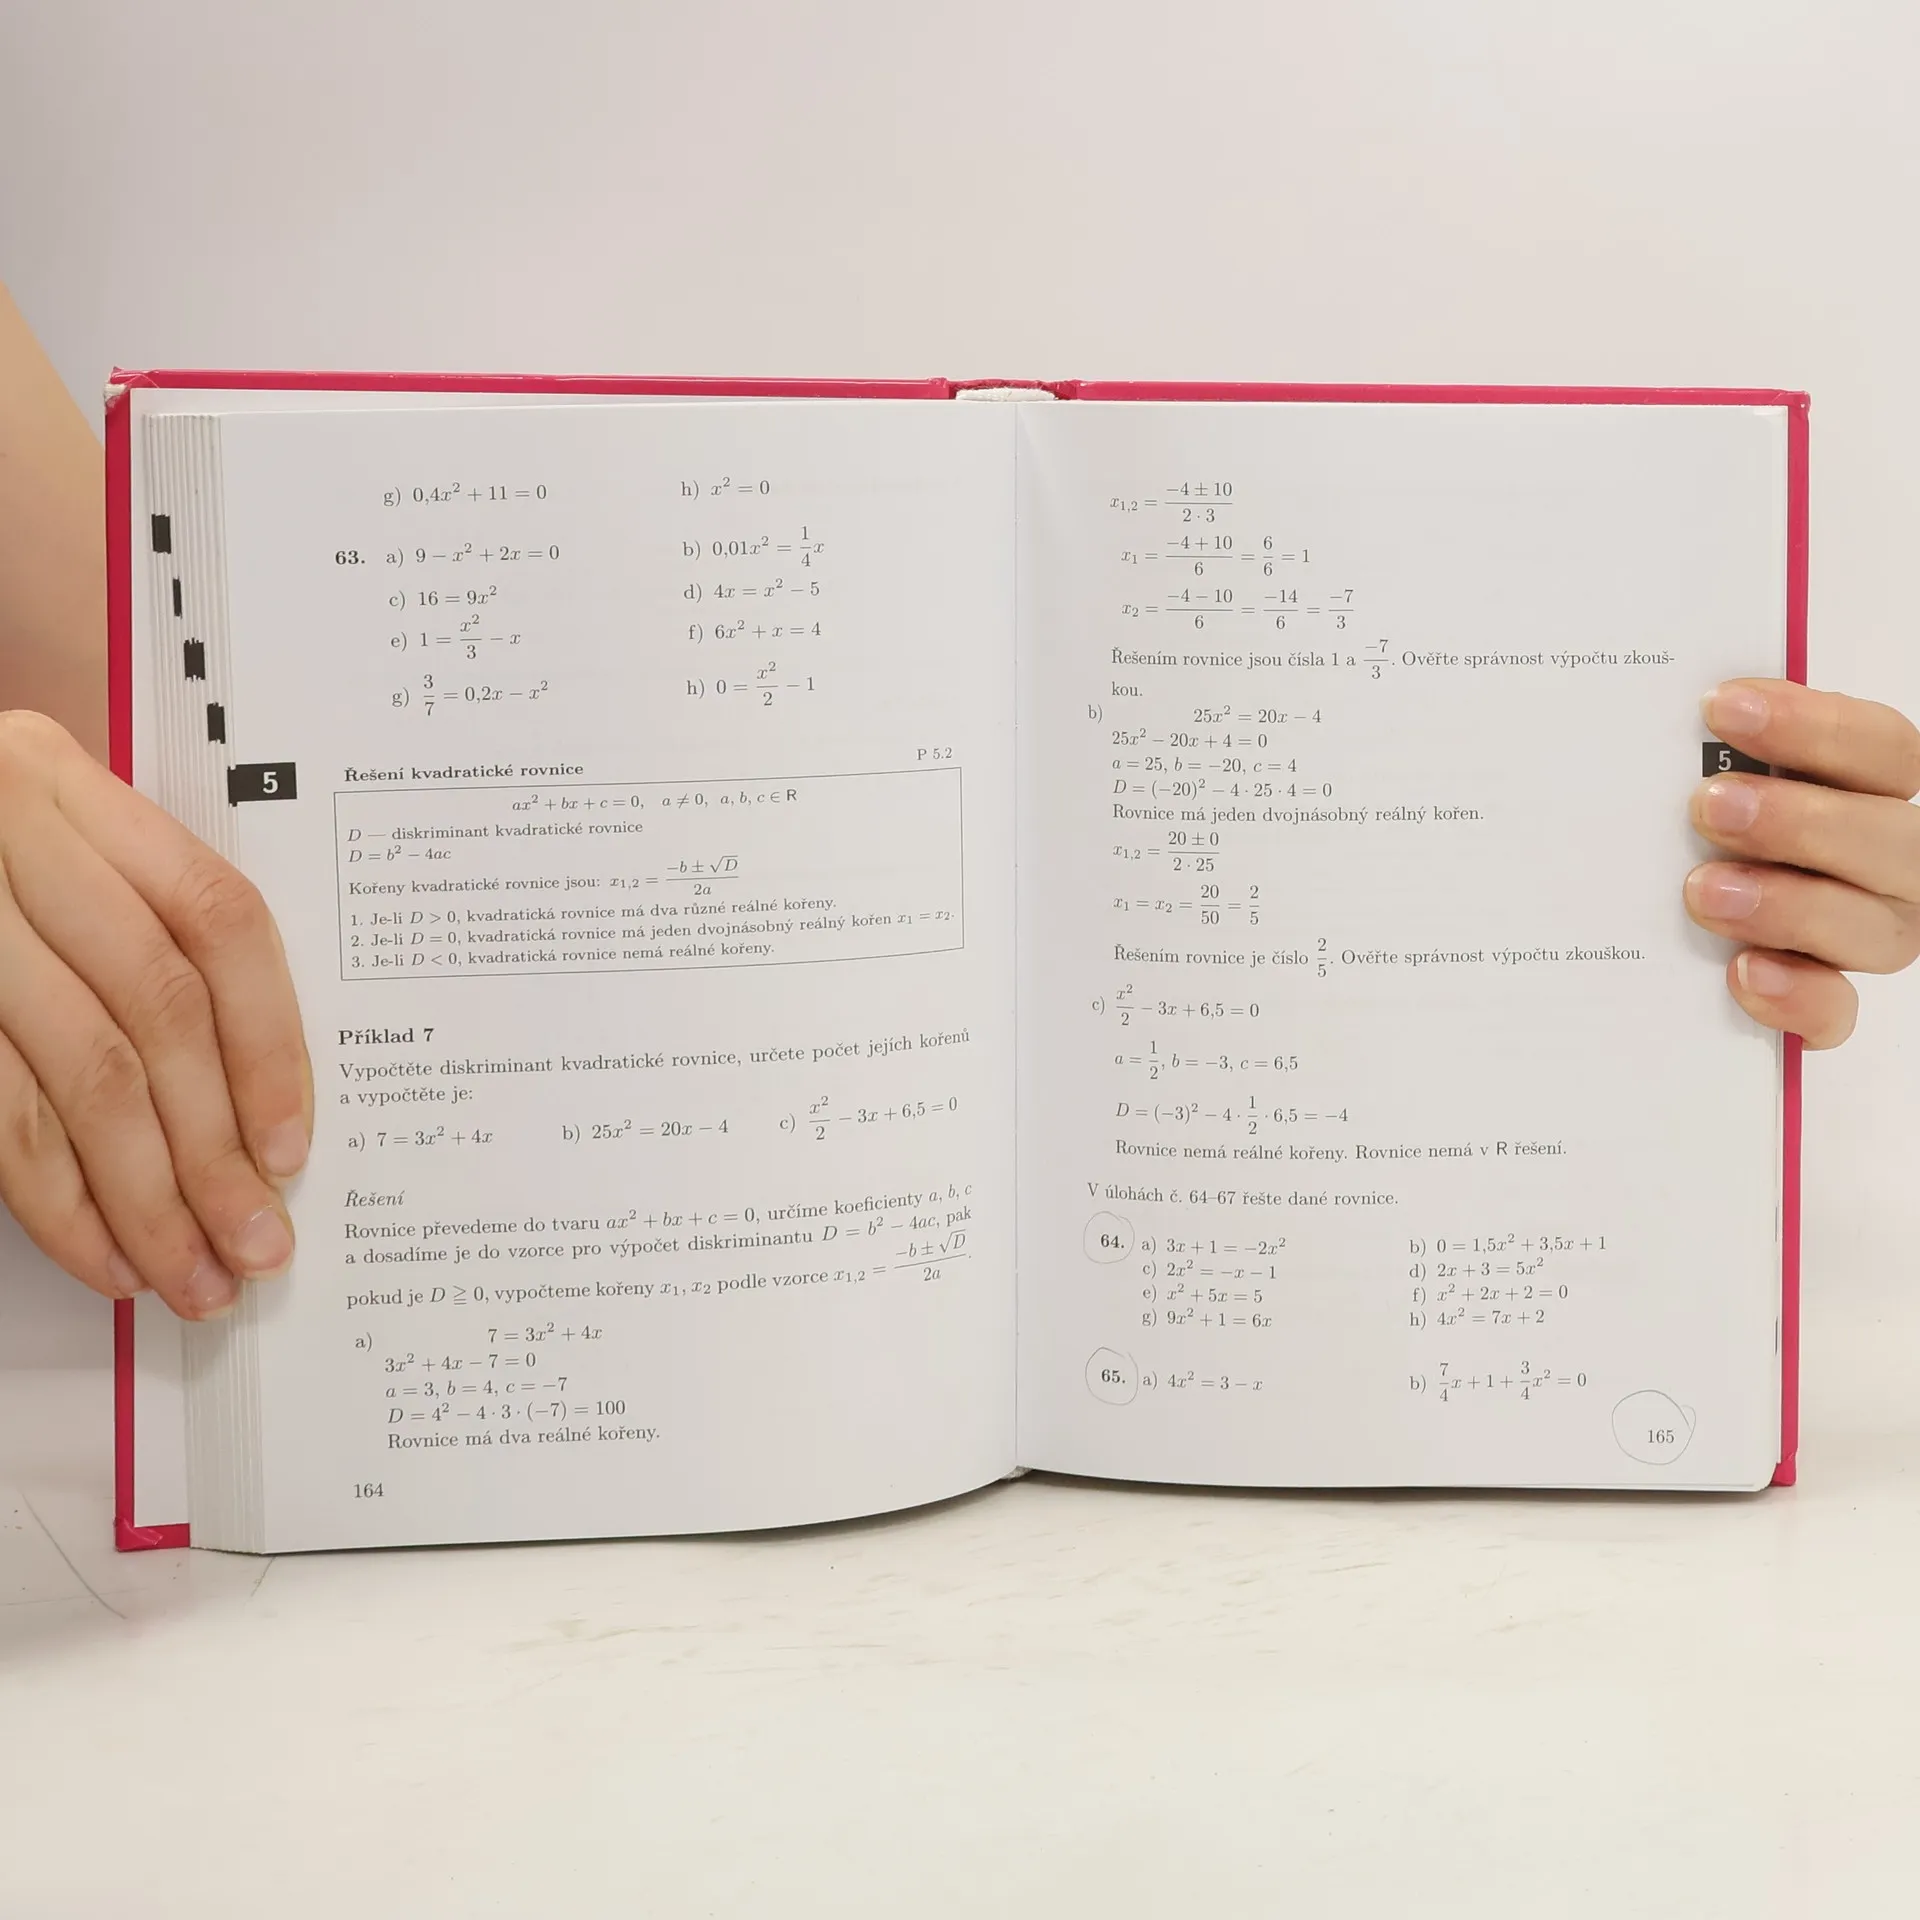 g) 0,4x² + 11 = 0 h) x² = 0
63. a) 9 − x² + 2x = 0 b) 0,01x² = 1/4 x
c) 16 = 9x² d) 4x = x² − 5
e) 1 = x²/3 − x f) 6x² + x = 4
g) 3/7 = 0,2x − x² h) 0 = x²/2 − 1
5
Řešení kvadratické rovnice P 5.2
ax² + bx + c = 0, a ≠ 0, a, b, c ∈ R
D — diskriminant kvadratické rovnice
D = b² − 4ac
Kořeny kvadratické rovnice jsou: x₁,₂ = (−b ± √D)/(2a)
1. Je-li D > 0, kvadratická rovnice má dva různé reálné kořeny.
2. Je-li D = 0, kvadratická rovnice má jeden dvojnásobný reálný kořen x₁ = x₂.
3. Je-li D < 0, kvadratická rovnice nemá reálné kořeny.
Příklad 7
Vypočtěte diskriminant kvadratické rovnice, určete počet jejích kořenů
a vypočtěte je:
a) 7 = 3x² + 4x b) 25x² = 20x − 4 c) x²/2 − 3x + 6,5 = 0
Řešení
Rovnice převedeme do tvaru ax² + bx + c = 0, určíme koeficienty a, b, c
a dosadíme je do vzorce pro výpočet diskriminantu D = b² − 4ac, pak
pokud je D ≧ 0, vypočteme kořeny x₁, x₂ podle vzorce x₁,₂ = (−b ± √D)/(2a).
a) 7 = 3x² + 4x
3x² + 4x − 7 = 0
a = 3, b = 4, c = −7
D = 4² − 4 · 3 · (−7) = 100
Rovnice má dva reálné kořeny.
164
x₁,₂ = (−4 ± 10)/(2 · 3)
x₁ = (−4 + 10)/6 = 6/6 = 1
x₂ = (−4 − 10)/6 = −14/6 = −7/3
Řešením rovnice jsou čísla 1 a −7/3. Ověřte správnost výpočtu zkouš-
kou.
b) 25x² = 20x − 4
25x² − 20x + 4 = 0
a = 25, b = −20, c = 4
D = (−20)² − 4 · 25 · 4 = 0
Rovnice má jeden dvojnásobný reálný kořen.
x₁,₂ = (20 ± 0)/(2 · 25)
x₁ = x₂ = 20/50 = 2/5
Řešením rovnice je číslo 2/5. Ověřte správnost výpočtu zkouškou.
c) x²/2 − 3x + 6,5 = 0
a = 1/2, b = −3, c = 6,5
D = (−3)² − 4 · 1/2 · 6,5 = −4
Rovnice nemá reálné kořeny. Rovnice nemá v R řešení.
V úlohách č. 64–67 řešte dané rovnice.
64. a) 3x + 1 = −2x² b) 0 = 1,5x² + 3,5x + 1
c) 2x² = −x − 1 d) 2x + 3 = 5x²
e) x² + 5x = 5 f) x² + 2x + 2 = 0
g) 9x² + 1 = 6x h) 4x² = 7x + 2
65. a) 4x² = 3 − x b) 7/4 x + 1 + 3/4 x² = 0
165
5